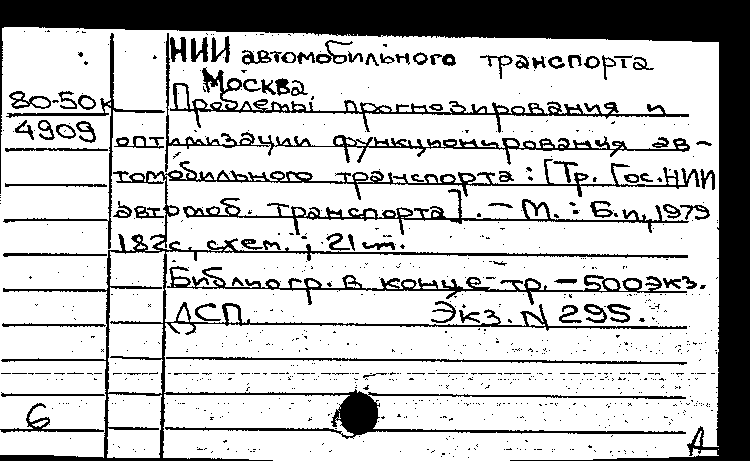 НИИ автомобильного транспорта
Москва
80-50к
Проблемы прогнозирования и
4909
оптимизации функционирования ав-
томобильного транспорта : [Тр. Гос. НИИ
автомоб. транспорта]. — М. : Б.и., 1979
182с., схем. ; 21см.
Библиогр. в конце тр. — 500экз.
ДСП. Экз. N 295.
6
А